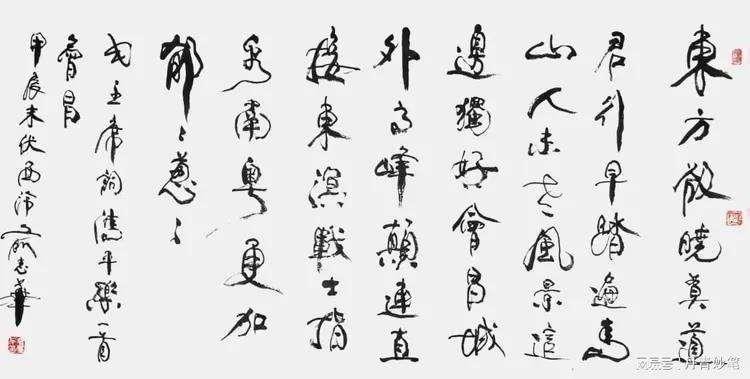 東方欲曉莫道
君行早踏遍青
山人未老風景這
邊獨好會昌城
外高峰顛連直
接東溟戰士指
看南粤更加
郁〻葱〻
毛主席詞清平樂一首
會昌
甲辰末伏西 志華
搜狐号@丹青妙笔